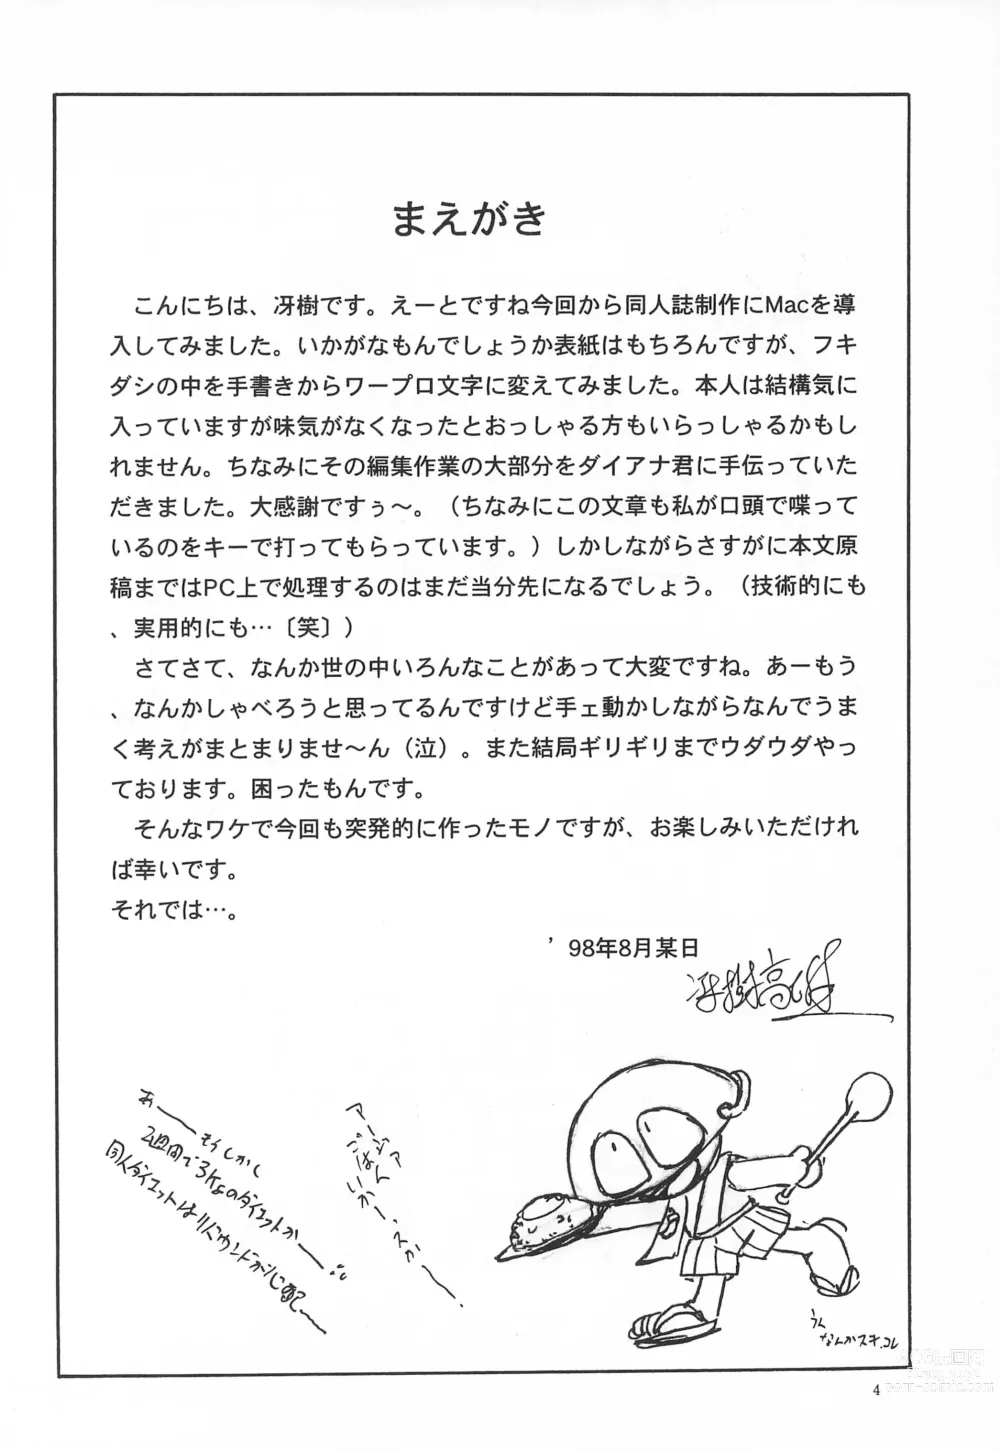 まえがき
　こんにちは、冴樹です。えーとですね今回から同人誌制作にMacを導
入してみました。いかがなもんでしょうか表紙はもちろんですが、フキ
ダシの中を手書きからワープロ文字に変えてみました。本人は結構気に
入っていますが味気がなくなったとおっしゃる方もいらっしゃるかもし
れません。ちなみにその編集作業の大部分をダイアナ君に手伝っていた
だきました。大感謝ですぅ～。（ちなみにこの文章も私が口頭で喋って
いるのをキーで打ってもらっています。）しかしながらさすがに本文原
稿まではPC上で処理するのはまだ当分先になるでしょう。（技術的にも
、実用的にも…〔笑〕）
　さてさて、なんか世の中いろんなことがあって大変ですね。あーもう
、なんかしゃべろうと思ってるんですけど手ェ動かしながらなんでうま
く考えがまとまりませ～ん（泣）。また結局ギリギリまでウダウダやっ
ております。困ったもんです。
　そんなワケで今回も突発的に作ったモノですが、お楽しみいただけれ
ば幸いです。
それでは…。
’98年8月某日
冴樹高雄
アージアー
ごはんー
いかーっスかー。
あー
もしかし
2週間で3kgのダイエットかー
同人ダイエットはリバウンドが心配ー
うん
なんかスキ.コレ
4